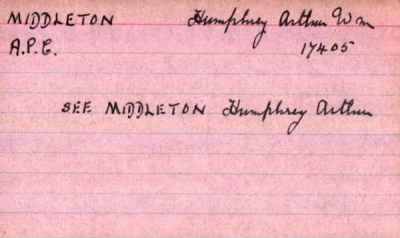 MIDDLETON Humphrey Arthur Wm
A.P.C. 17405
SEE MIDDLETON Humphrey Arthur